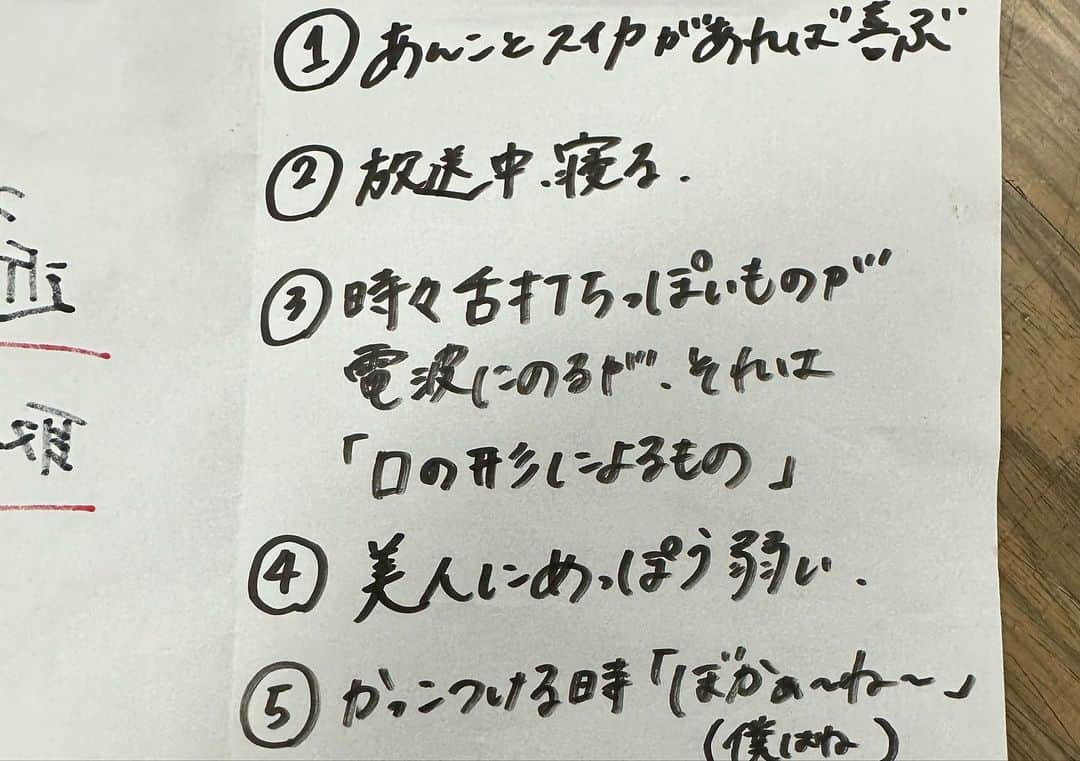 ①あんことスイカがあれば喜ぶ
②放送中、寝る.
③時々舌打ちっぽいものが
電波にのるが、それは
「口の形によるもの」
④美人にめっぽう弱い.
⑤かっこつける時「ぼかぁ〜ね〜」
(僕はね)